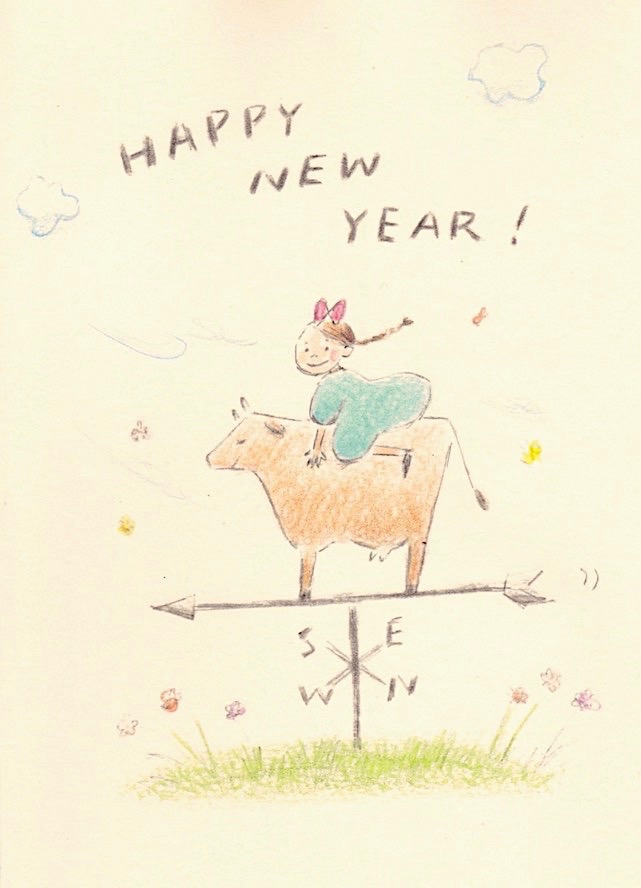 HAPPY
NEW
YEAR!
S E
W N